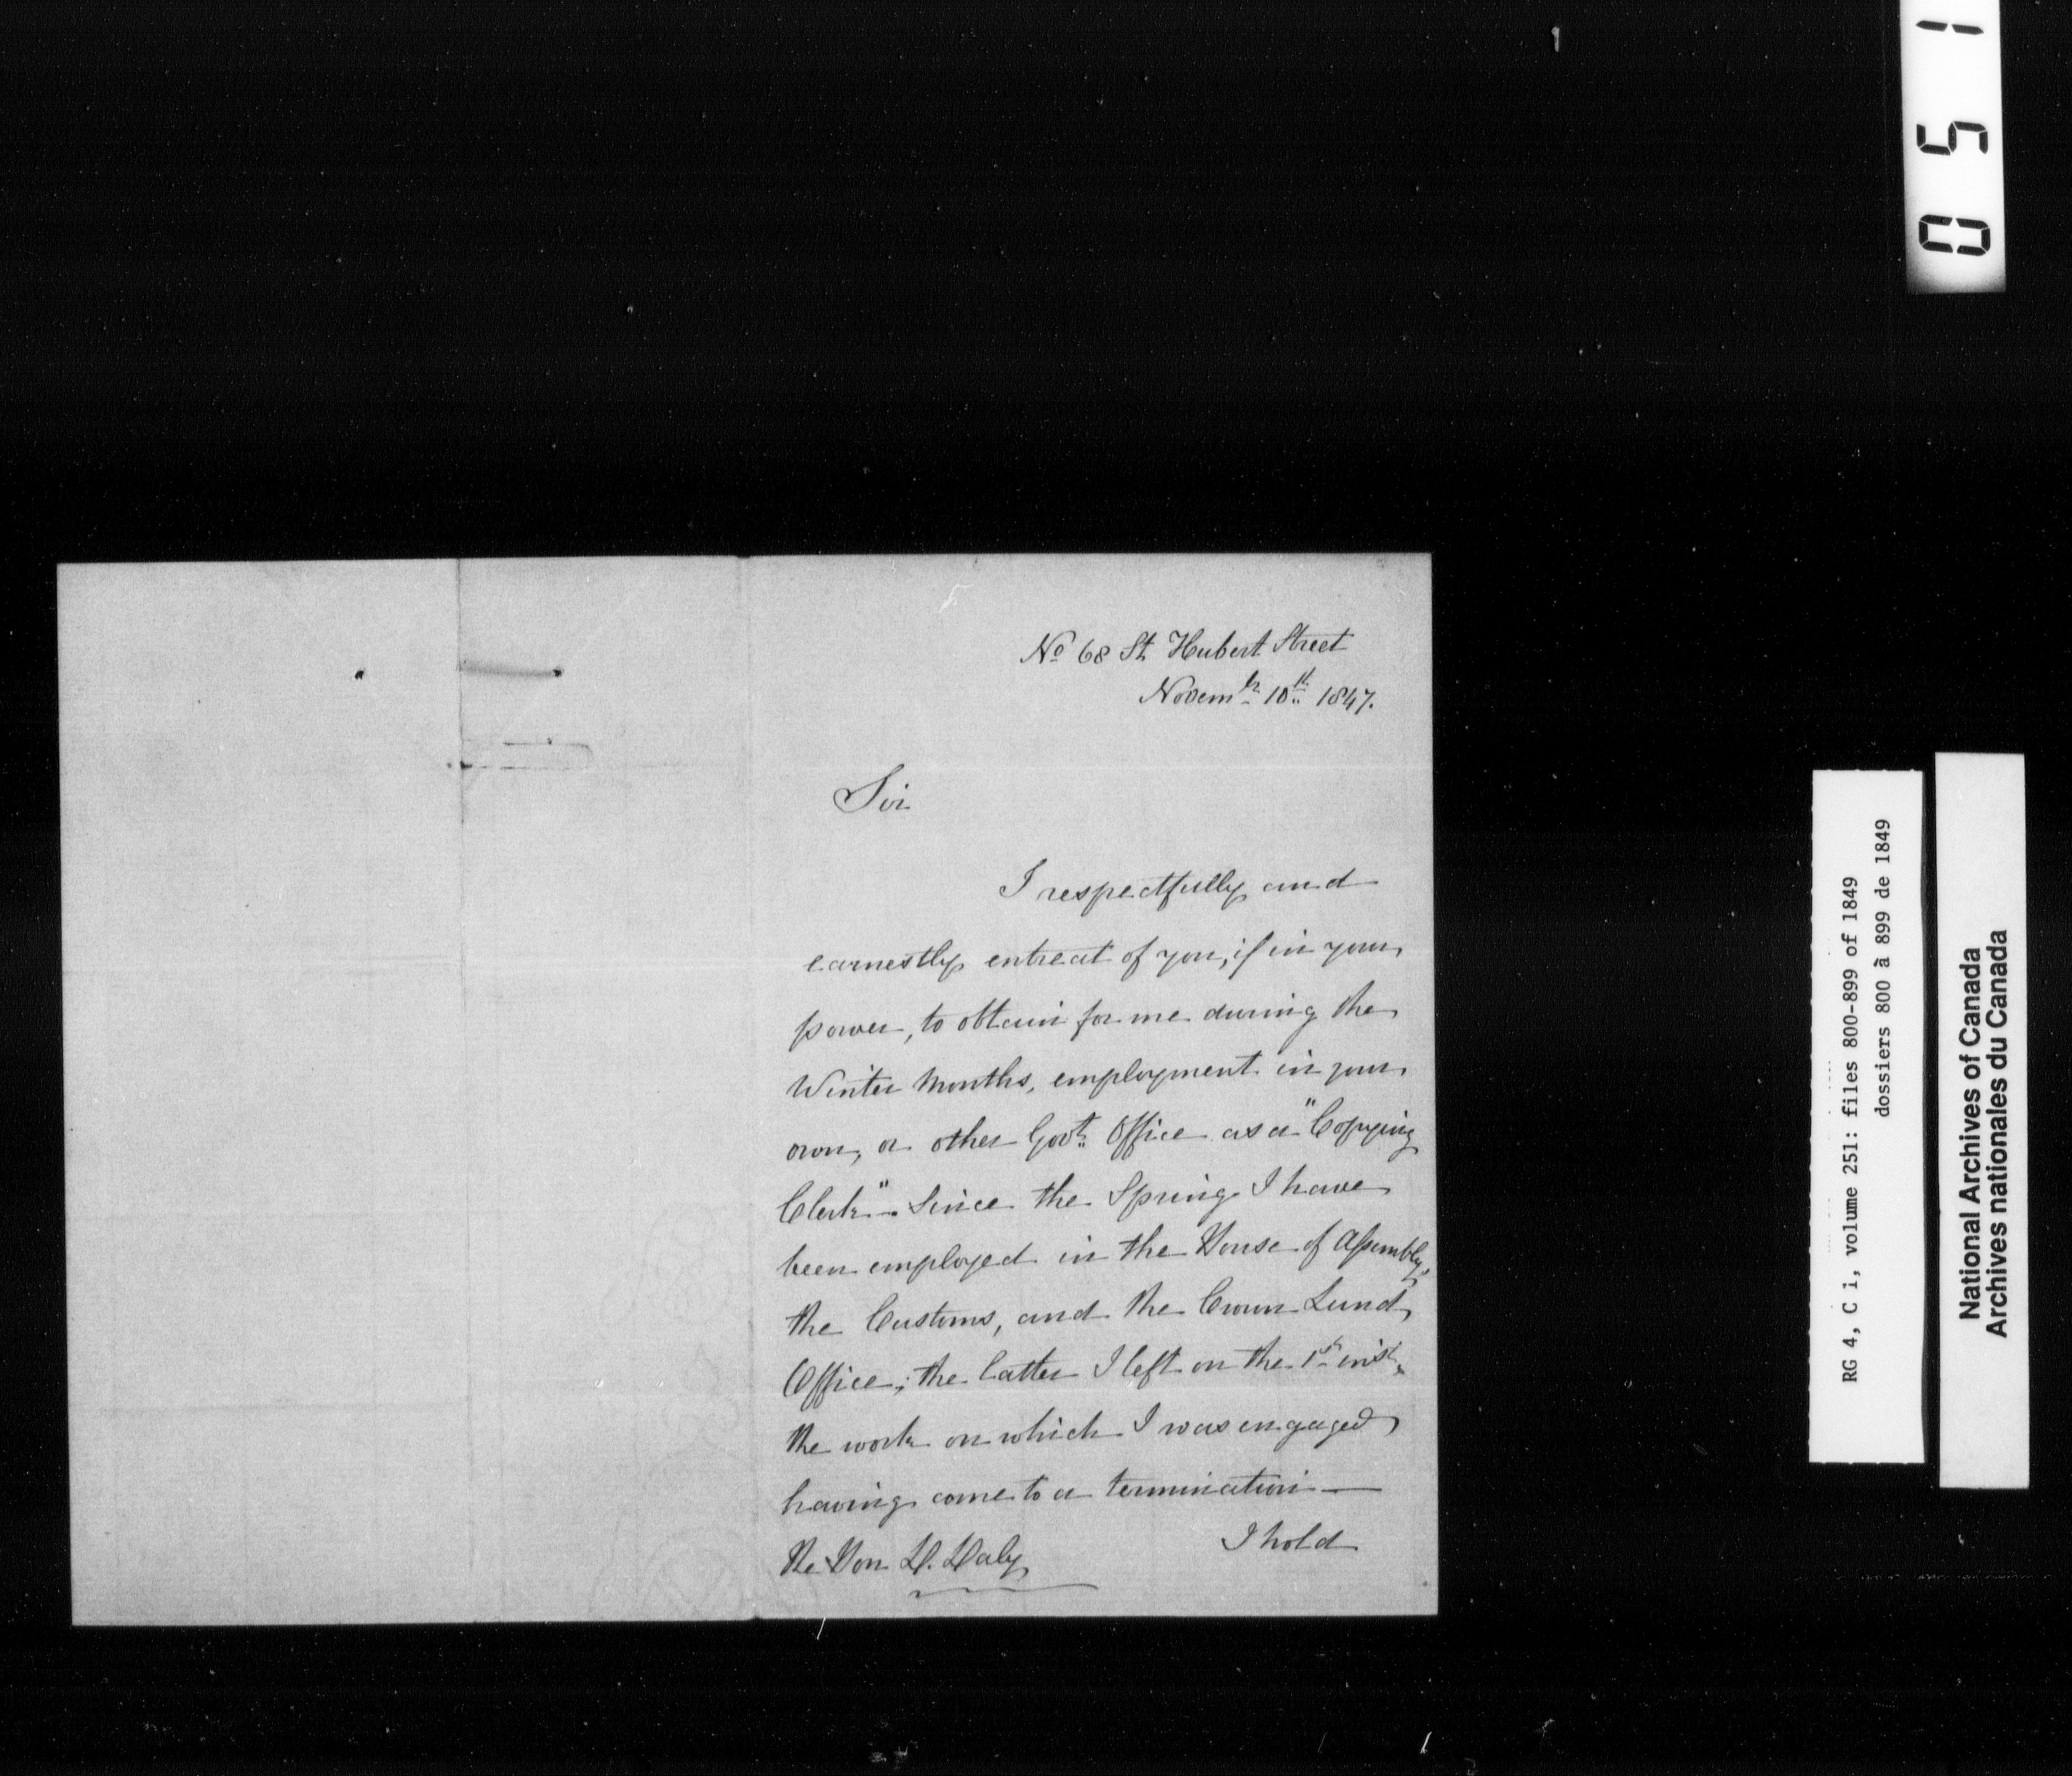 No 68 St Hubert Street
Novembr 10th 1847.
Sir
I respectfully and
earnestly entreat of you, if in your
power, to obtain for me during the
Winter Months, employment in your
own, or other Govt. Office as a "Copying
Clerk". Since the Spring I have
been employed in the House of Assembly,
the Customs, and the Crown Land
Office; the latter I left on the 1st inst.
the work on which I was engaged
having come to a termination —
I hold
The Hon D. Daly
0 5 1
RG 4, C i, volume 251: files 800-899 of 1849
dossiers 800 à 899 de 1849
National Archives of Canada
Archives nationales du Canada